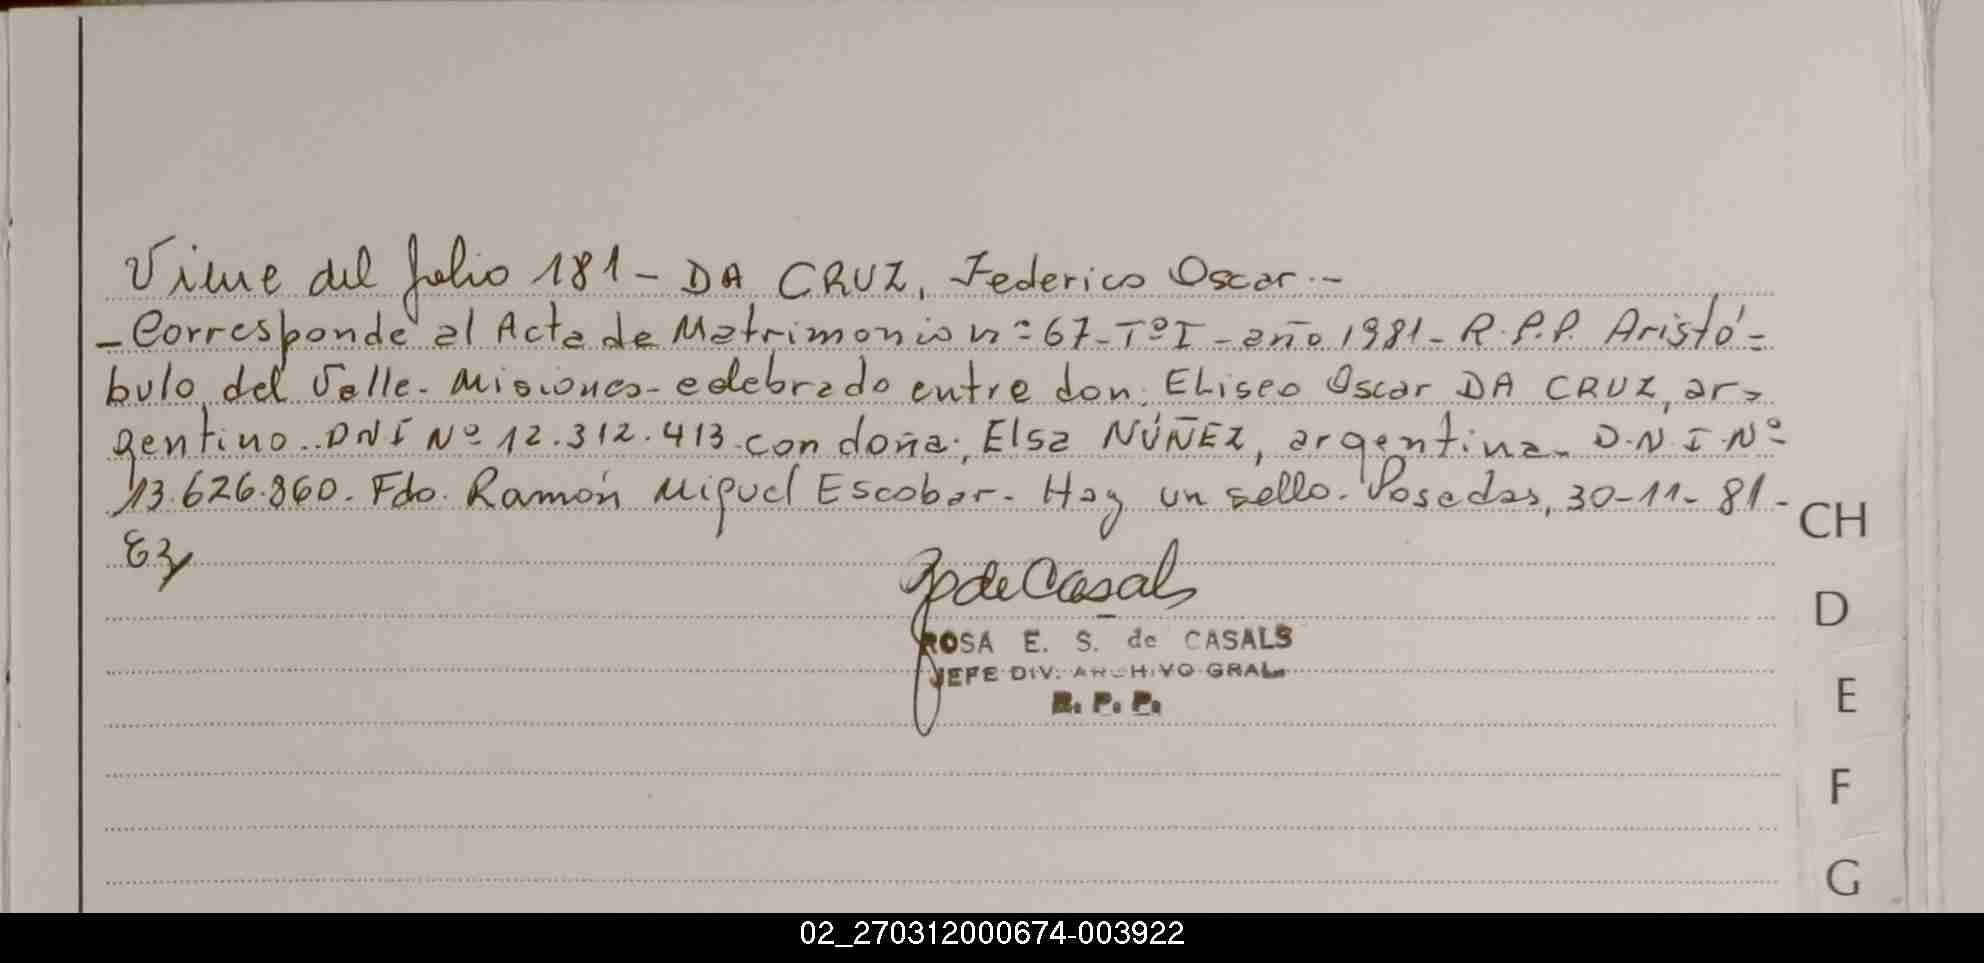 Viene del folio 181 - DA CRUZ, Federico Oscar.-
- Corresponde al Acta de Matrimonio nº 67 - Tº I - año 1981 - R.P.P. Aristó-
bulo del Valle. Misiones - celebrado entre don: Eliseo Oscar DA CRUZ, ar-
gentino. DNI Nº 12.312.413 con doña: Elsa NÚÑEZ, argentina. D.N.I Nº
13.626.860. Fdo. Ramón Miguel Escobar. Hay un sello. Posadas, 30-11-81-
CH
de Casals
D
ROSA E. S. de CASALS
JEFE DIV. ARCHIVO GRAL.
R. P. P.
E
F
G
02_270312000674-003922